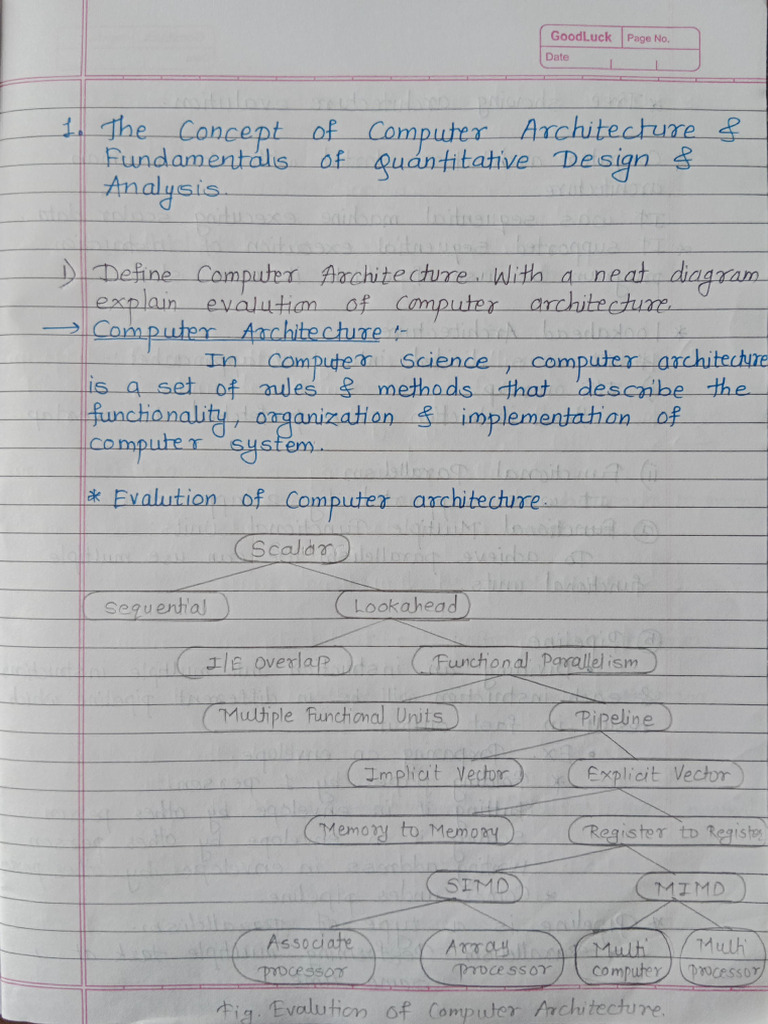 GoodLuck Page No.
Date
1. The Concept of Computer Architecture &
Fundamentals of Quantitative Design &
Analysis.
i) Define Computer Architecture. With a neat diagram
explain evalution of computer architecture.
→ Computer Architecture :-
In Computer Science, computer architecture
is a set of rules & methods that describe the
functionality, organization & implementation of
computer system.
* Evalution of Computer architecture.
Scalar
Sequential Lookahead
I/E Overlap Functional Parallelism
Multiple Functional Units Pipeline
Implicit Vector Explicit Vector
Memory to Memory Register to Register
SIMD MIMD
Associate Array Multi Multi
processor processor computer processor
Fig. Evalution of Computer Architecture.